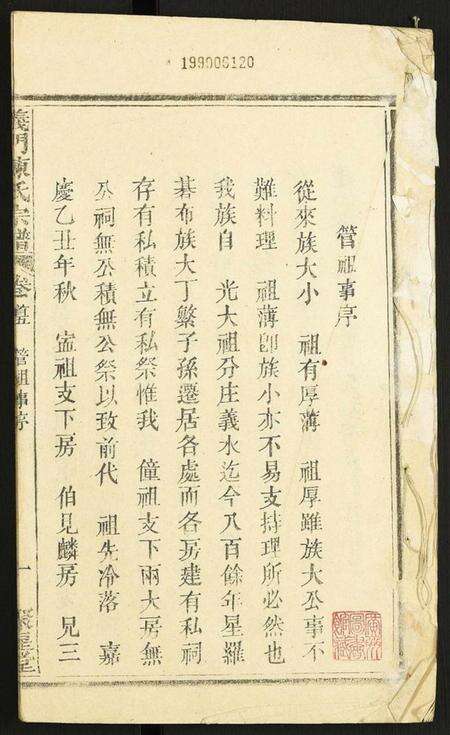 199006120
管祖事序
從來族大小　祖有厚薄　祖厚雖族大公事不
難料理　祖薄卽族小亦不易支持理所必然也
我族自　光大祖分庄義水迄今八百餘年星羅
碁布族大丁繁子孫遷居各處而各房建有私祠
存有私積立有私祭惟我　僮祖支下兩大房無
公祠無公積無公祭以致前代　祖先冷落　嘉
慶乙丑年秋　宓祖支下房　伯見麟房　兄三
義門陳氏宗譜　卷首　管祖事序　一